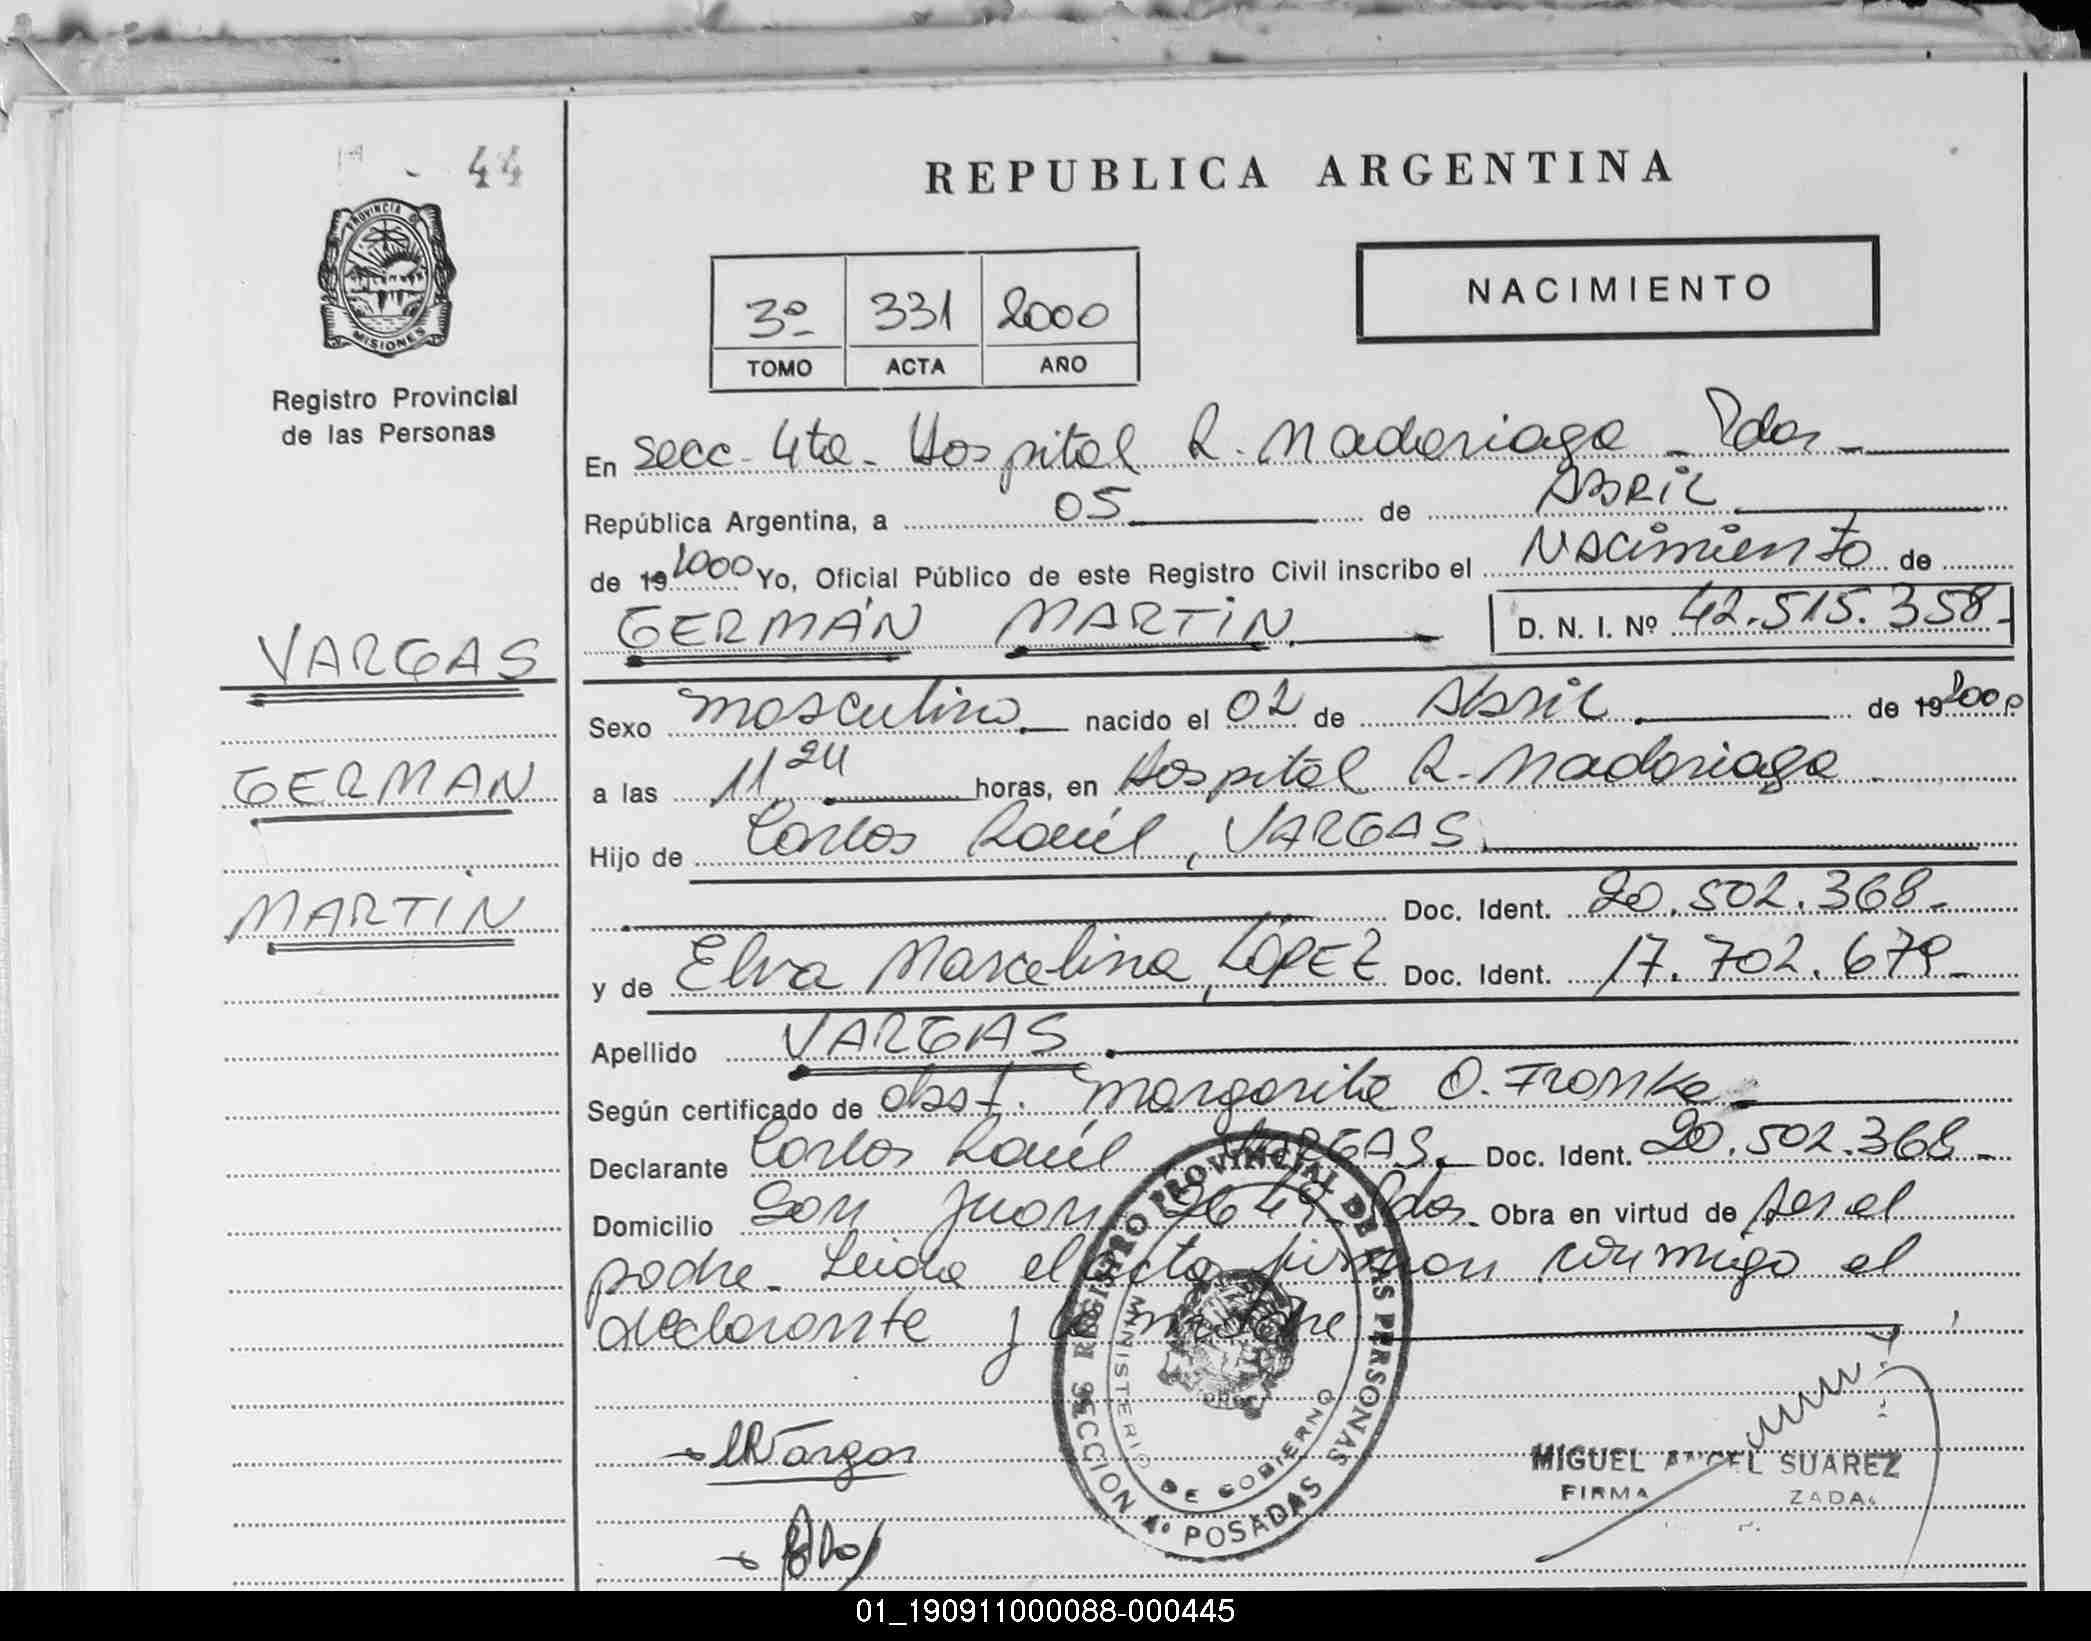 44
REPUBLICA ARGENTINA
PROVINCIA DE MISIONES
Registro Provincial
de las Personas
3º 331 2000
TOMO ACTA AÑO
NACIMIENTO
En Secc- 4ta- Hospital R. Madariaga - Pdas-
República Argentina, a 05 de ABRIL
de 19 2000 Yo, Oficial Público de este Registro Civil inscribo el Nacimiento de
GERMÁN MARTIN D. N. I. Nº 42.515.358-
VARGAS
Sexo masculino nacido el 02 de Abril de 19 2000
GERMAN
a las 11 24 horas, en Hospital R. Madariaga
Hijo de Carlos Raúl, VARGAS
MARTIN
Doc. Ident. 20.502.368-
y de Elva Marcelina, LÓPEZ Doc. Ident. 17.702.679-
Apellido VARGAS
Según certificado de obst. Margarita O. Fronke
Declarante Carlos Raúl VARGAS. Doc. Ident. 20.502.368-
Domicilio San Juan Pdas. Obra en virtud de ser el
padre- Leida el acta firman conmigo el
declarante y la madre
REGISTRO PROVINCIAL DE LAS PERSONAS
MINISTERIO DE GOBIERNO
SECCION 4º POSADAS
Vargas
MIGUEL ANGEL SUAREZ
FIRMA
01_190911000088-000445